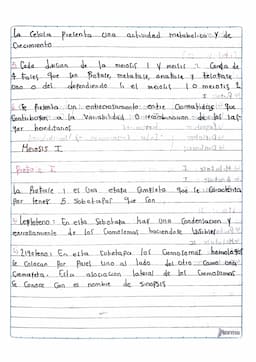 La Celula Presenta una actividad metabolica y de
Crecimiento
5. Cada division de la meiosis 1 y meiosis 2 Consta de
4. Fases que son Profase, metafase, anafase y telofase
uno o dos dependiendo si es meiosis 1 o meiosis 2
6. Se Presenta un entrecruzamiento entre Cromatidas que
Contribuyen a la variabilidad o recombinacion de los
hereditarios
Meiosis I.
Profase I
La Profase 1 es una etapa Compleja que se caracteriza
Por tener 5. Sobetapas que son
Leptoteno: En esta Sobetapa hay una Condensacion y
enrollamiento de los Cromosomas haciendose Visibles
Zigoteno: En esta Sobetapa los Cromosomas homologos
se Colocan Por Pares uno al lado del otro Como una
Cremallera. Esta asociacion lateral de los Cromosomas
Se Conoce Con el nombre de Sinapsis
Norma